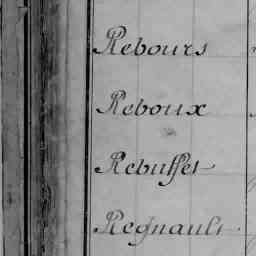 Rebours
Reboux
Rebuffet
Regnault